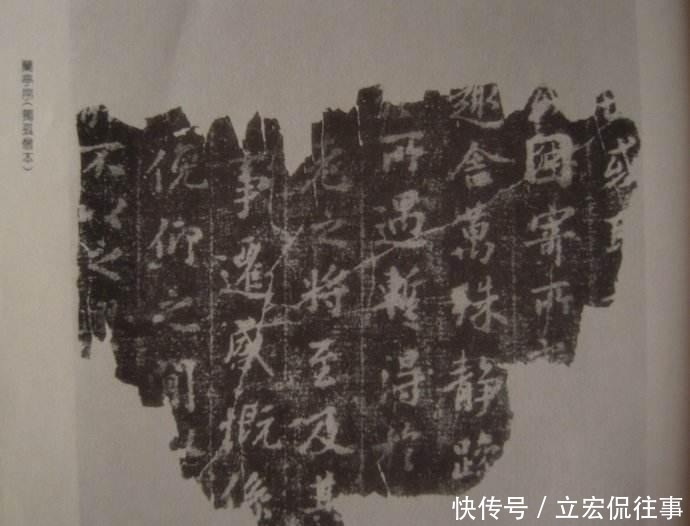 世或取
因寄所
趣舍萬殊靜躁
所遇暫得於
老之將至及其
事遷感慨係
俛仰之間以
不以之興
蘭亭序(獨孤僧本)
快传号/立宏侃往事